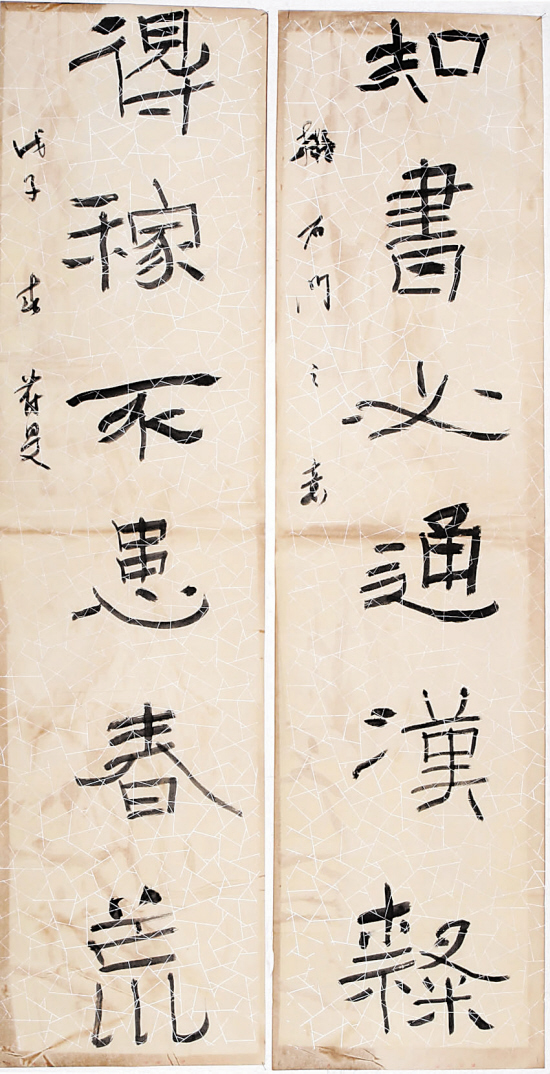 知書必通漢隸
石門之意
得稼不患春荒
戊子春